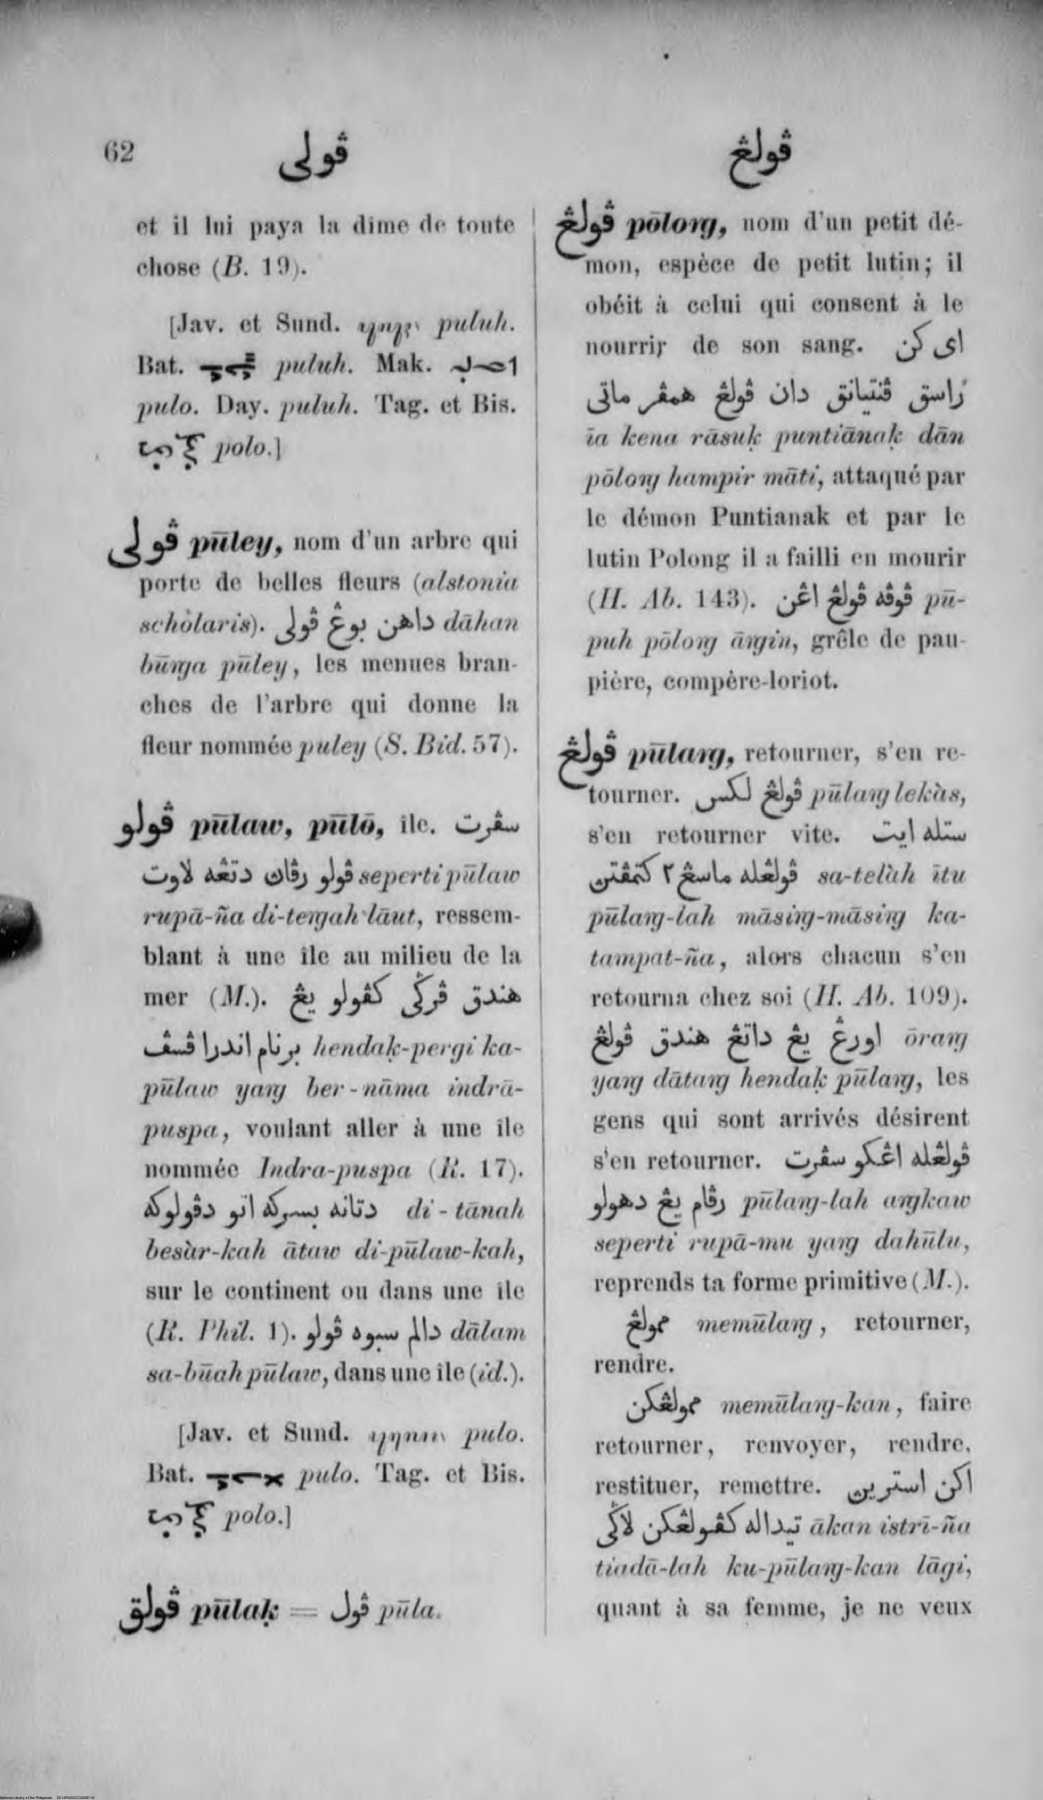 62
ڤولى
ڤولڠ
et il lui paya la dime de toute
chose (B. 19).
[Jav. et Sund. puluh.
Bat. puluh. Mak.
pulo. Day. puluh. Tag. et Bis.
polo.]
ڤولى pūley, nom d'un arbre qui
porte de belles fleurs (alstonia
schòlaris). داهن بوڠ ڤولى dāhan
būṅga pūley, les menues bran-
ches de l'arbre qui donne la
fleur nommée puley (S. Bid. 57).
ڤولو pūlaw, pūlō, île. سڤرت
ڤولو رڤاڽ دتڠه لاوت seperti pūlaw
rupā-ña di-teṅgah lāut, ressem-
blant à une île au milieu de la
mer (M.). هندق ڤرݢى كڤولو يڠ
برنام اندرا ڤسڤ hendaḳ-pergi ka-
pūlaw yaṅg ber-nāma indrā-
puspa, voulant aller à une île
nommée Indra-puspa (R. 17).
دتانه بسركه اتو دڤولوكه di-tānah
besàr-kah ātaw di-pūlaw-kah,
sur le continent ou dans une île
(R. Phil. 1). دالم سبوه ڤولو dālam
sa-būah pūlaw, dans une île (id.).
[Jav. et Sund. pulo.
Bat. pulo. Tag. et Bis.
polo.]
ڤولق pūlaḳ = ڤول pūla.
ڤولڠ pōloṅg, nom d'un petit dé-
mon, espèce de petit lutin; il
obéit à celui qui consent à le
nourrir de son sang. اى كن
راسق ڤنتيانق دان ڤولڠ همڤر ماتى
īa kena rāsuḳ puntiānaḳ dān
pōloṅg hampir māti, attaqué par
le démon Puntianak et par le
lutin Polong il a failli en mourir
(H. Ab. 143). ڤوڤه ڤولڠ اڠن pū-
puh pōloṅg āṅgin, grêle de pau-
pière, compère-loriot.
ڤولڠ pūlaṅg, retourner, s'en re-
tourner. ڤولڠ لكس pūlaṅg lekàs,
s'en retourner vite. ستله ايت
ڤولڠله ماسڠ٢ كتمڤتڽ sa-telàh ītu
pūlaṅg-lah māsiṅg-māsiṅg ka-
tampat-ña, alors chacun s'en
retourna chez soi (H. Ab. 109).
اورڠ يڠ داتڠ هندق ڤولڠ ōraṅg
yaṅg dātaṅg hendaḳ pūlaṅg, les
gens qui sont arrivés désirent
s'en retourner. ڤولڠله اڠكو سڤرت
رڤام يڠ دهولو pūlaṅg-lah aṅgkaw
seperti rupā-mu yaṅg dahūlu,
reprends ta forme primitive (M.).
ممولڠ memūlaṅg, retourner,
rendre.
ممولڠكن memūlaṅg-kan, faire
retourner, renvoyer, rendre,
restituer, remettre. اكن استريڽ
تيداله كڤولڠكن لاݢى ākan istrī-ña
tiadā-lah ku-pūlaṅg-kan lāgi,
quant à sa femme, je ne veux